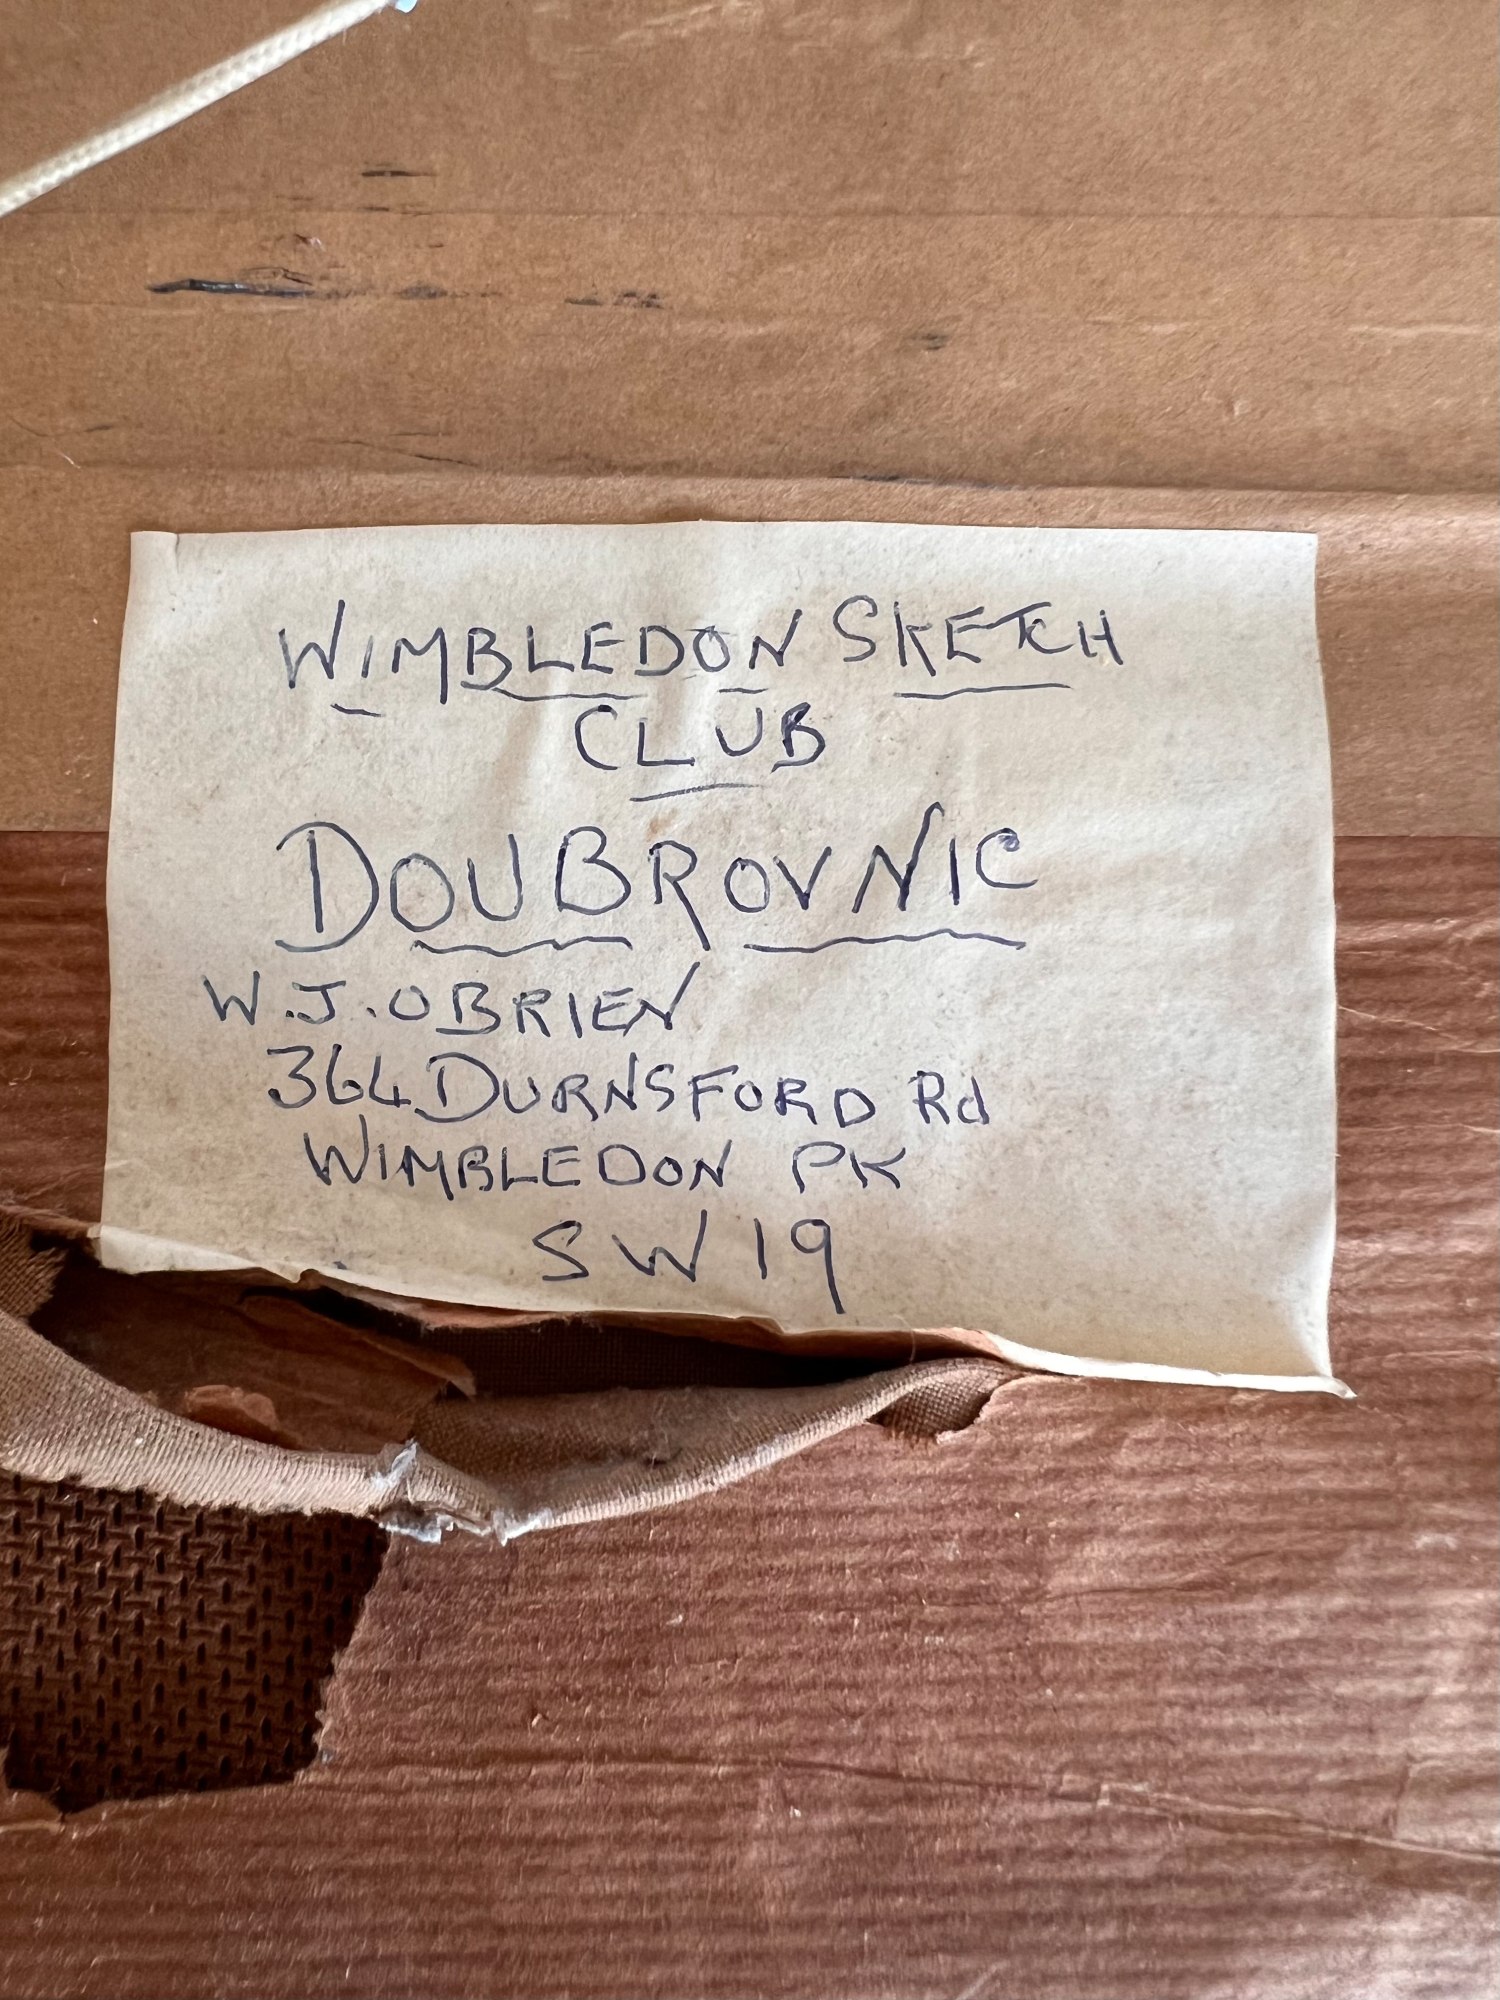 WIMBLEDON SKETCH
CLUB
DOUBROVNIC
W.J.OBRIEN
364 DURNSFORD Rd
WIMBLEDON PK
SW19